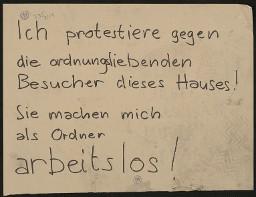 Ich protestiere gegen
die ordnungsliebenden
Besucher dieses Hauses!
Sie machen mich
als Ordner
arbeitslos!